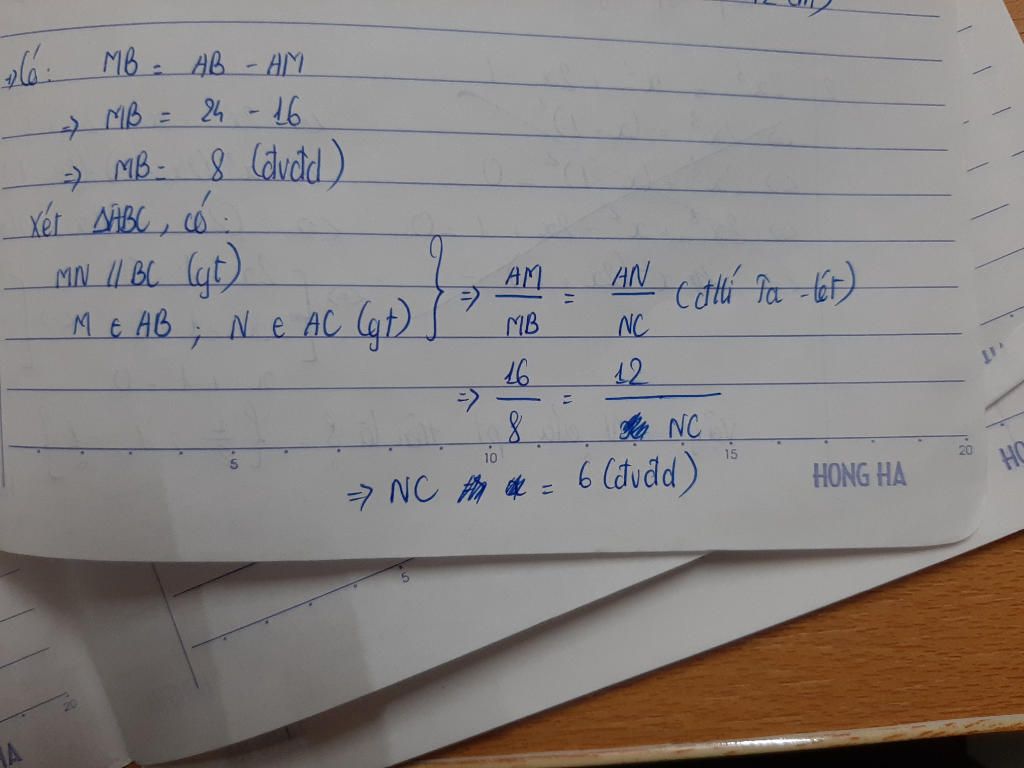 ⇒ Có: MB = AB - AM
⇒ MB = 24 - 16
⇒ MB = 8 (đvđd)
Xét ΔABC, có:
MN // BC (gt)
M ∈ AB ; N ∈ AC (gt) } ⇒ AM/MB = AN/NC (đlí Ta-lét)
⇒ 16/8 = 12/NC
5 10 15 20
HONG HA
⇒ NC = 6 (đvđd)
5
20
HA
HO